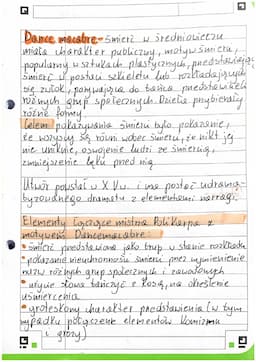 Dance macabre - śmierć w średniowieczu
miała charakter publiczny, motyw śmierci,
popularny w sztukach plastycznych, przedstawiający
śmierć w postaci szkieletu lub rozkładających
się zwłok, porywająca do tańca przedstawicieli
różnych grup społecznych. Dzieła przybierały
różne formy.
Celem pokazywania śmierci było pokazanie,
że wszyscy są równi wobec śmierci, że nikt jej
nie uniknie, oswojenie ludzi ze śmiercią,
zmniejszenie lęku przed nią.
Utwór powstał w XV w. i ma postać udrama-
tyzowanego dramatu z elementami narracji.
Elementy łączące mistrza Polikarpa z
motywem Dancemacabre:
• śmierć przedstawiona jako trup w stanie rozkładu
• pokazanie nieuchronności śmierci przez wymienienie
nazw różnych grup społecznych i zawodowych
• użycie słowa tańczyć z kosą, na określenie
uśmiercenia
• groteskowy charakter przedstawienia (w tym
wypadku połączenie elementów komizmu
i grozy)